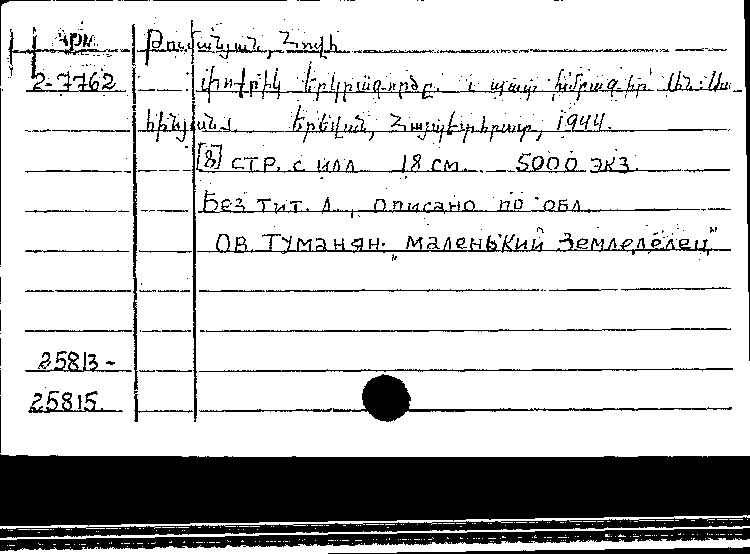 Арм. Թումանյան, Հովհ
2-7762 Փոքրիկ երկրագործը.
Երևան, Հայպետհրատ, 1944.
[8] стр. с илл 18 см. 5000 экз.
Без тит. л., описано по обл.
Ов. Туманян. "Маленький земледелец"
25813-
25815.